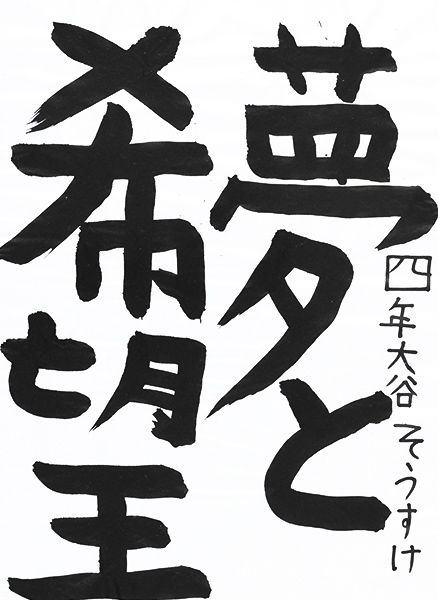 夢と
希望
四年大谷そうすけ